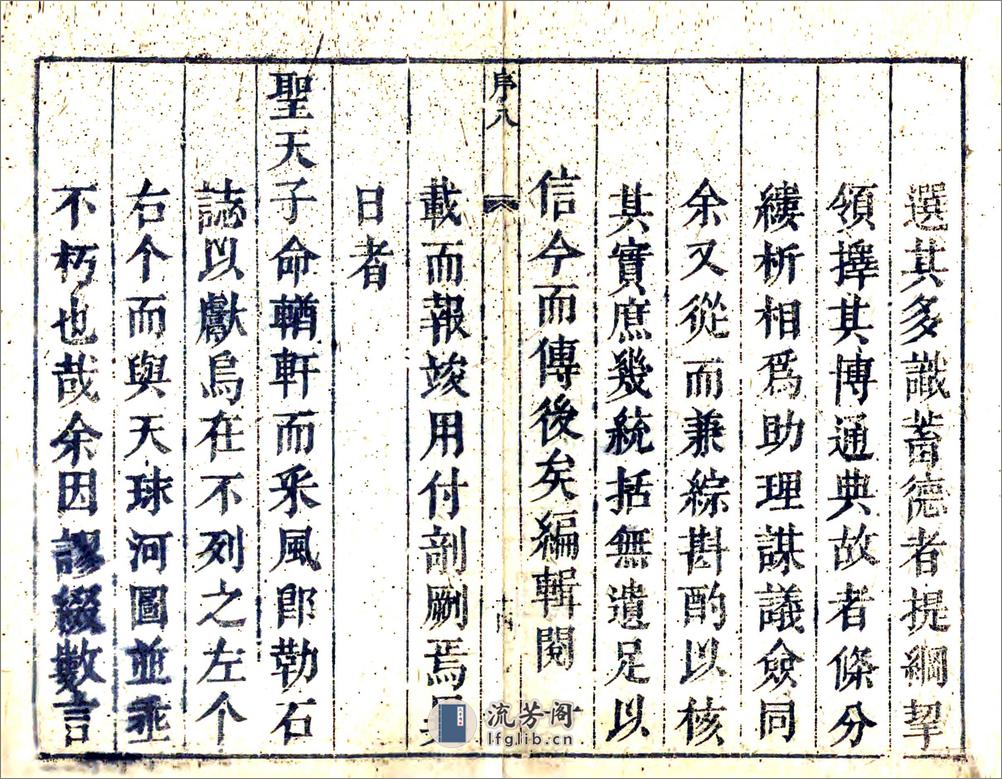 選其多識蓄德者提綱挈
領擇其博通典故者條分
縷析相爲助理謀議僉同
余又從而兼綜斟酌以核
其實庶幾統括無遺足以
信今而傳後矣編輯閱
序八
載而報竣用付剞劂焉
日者
聖天子命輶軒而采風郎勒石
誌以獻烏在不列之左个
右个而與天球河圖並垂
不朽也哉余因謬綴數言
流芳阁
lfglib.cn